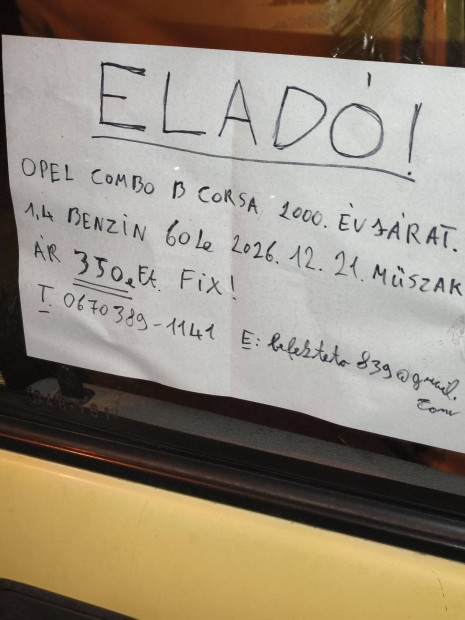 ELADÓ!
OPEL COMBO B CORSA, 2000. ÉVJÁRAT.
1,4 BENZIN 60 Le 2026. 12. 21. MŰSZAK
ÁR 350.eFt. FIX!
T. 0670389-1141 E: befekteto839@gmail.
com